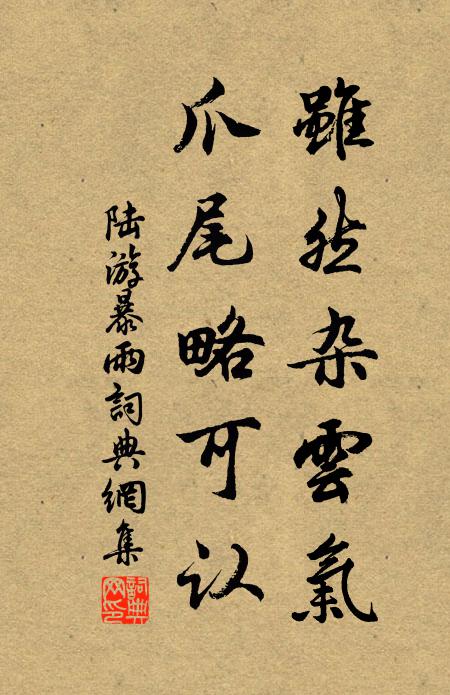 雖然杂雲氣
爪尾略可认
陆游暴雨詞典網集
詞典网印